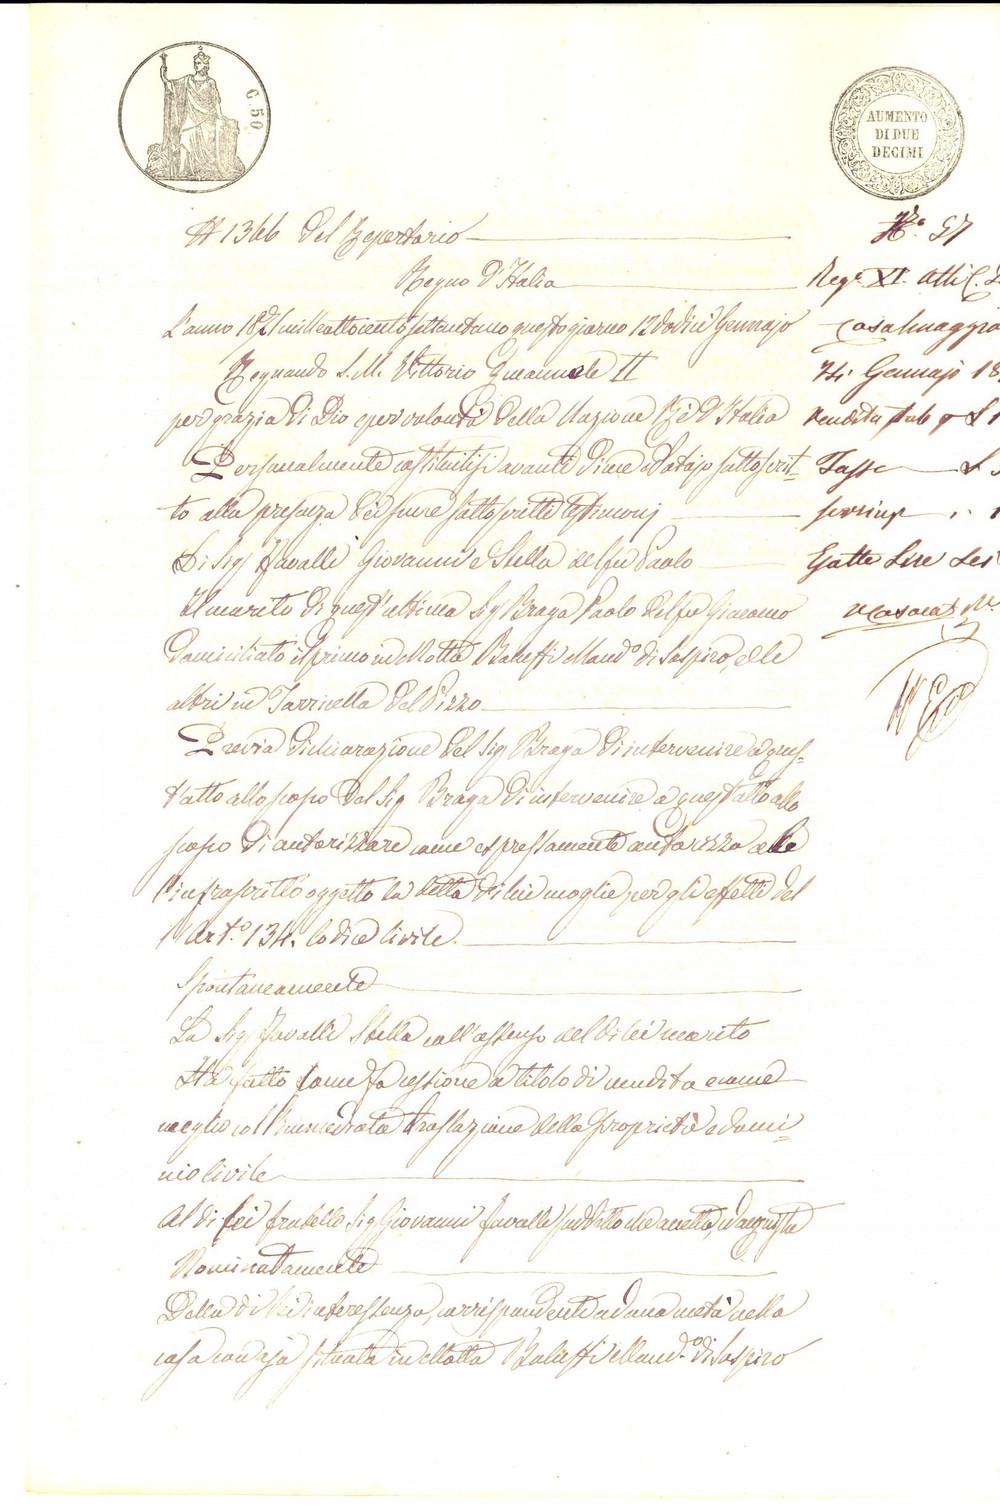 C. 50
AUMENTO
DI DUE
DECIMI
N 1366 del Repertorio
Regno d'Italia
L'anno 1871 milleottocentosettantuno questo giorno 12 dodici Gennajo
Regnando S. M. Vittorio Emanuele II
per grazia di Dio e per volontà della Nazione Re d'Italia
Personalmente costituitisi avanti di me Notajo sottoscrit-
to alla presenza dei pure sottoscritti testimonj
Li Sigi Favalli Giovanni e Stella del fu Paolo
Il marito di quest'ultima Sigr Braga Paolo del fu Giacomo
domiciliato il primo in Motta Baluffi Mando di Sospiro, e le
altri in Torricella del Pizzo
Previa dichiarazione del Sig Braga di intervenire a ques-
t'atto allo scopo del Sig Braga di intervenire a quest'atto allo
scopo di autorizzare come espressamente autorizza alle
l'infrascritto oggetto la detta di lui moglie per gli effetti del
l'Arto 134. Codice Civile.
Spontaneamente
La Sigr Favalli Stella coll'assenso del di lei marito
Ha fatto come fa cessione a titolo di vendita e come
meglio coll'immediata traslazione della proprietà e domi-
nio civile
Al di lei fratello Sig Giovanni Favalli suddetto che accetta, ed acquista
Nominatamente
Della di lei interessenza, corrispondente ad una metà nella
casa con aja situata in Motta Baluffi Mando di Sospiro
No 57
Rego XI. Atti C.
Casalmaggio
24 Gennajo 18
Vendita
Tasse L
Esatte Lire Sei